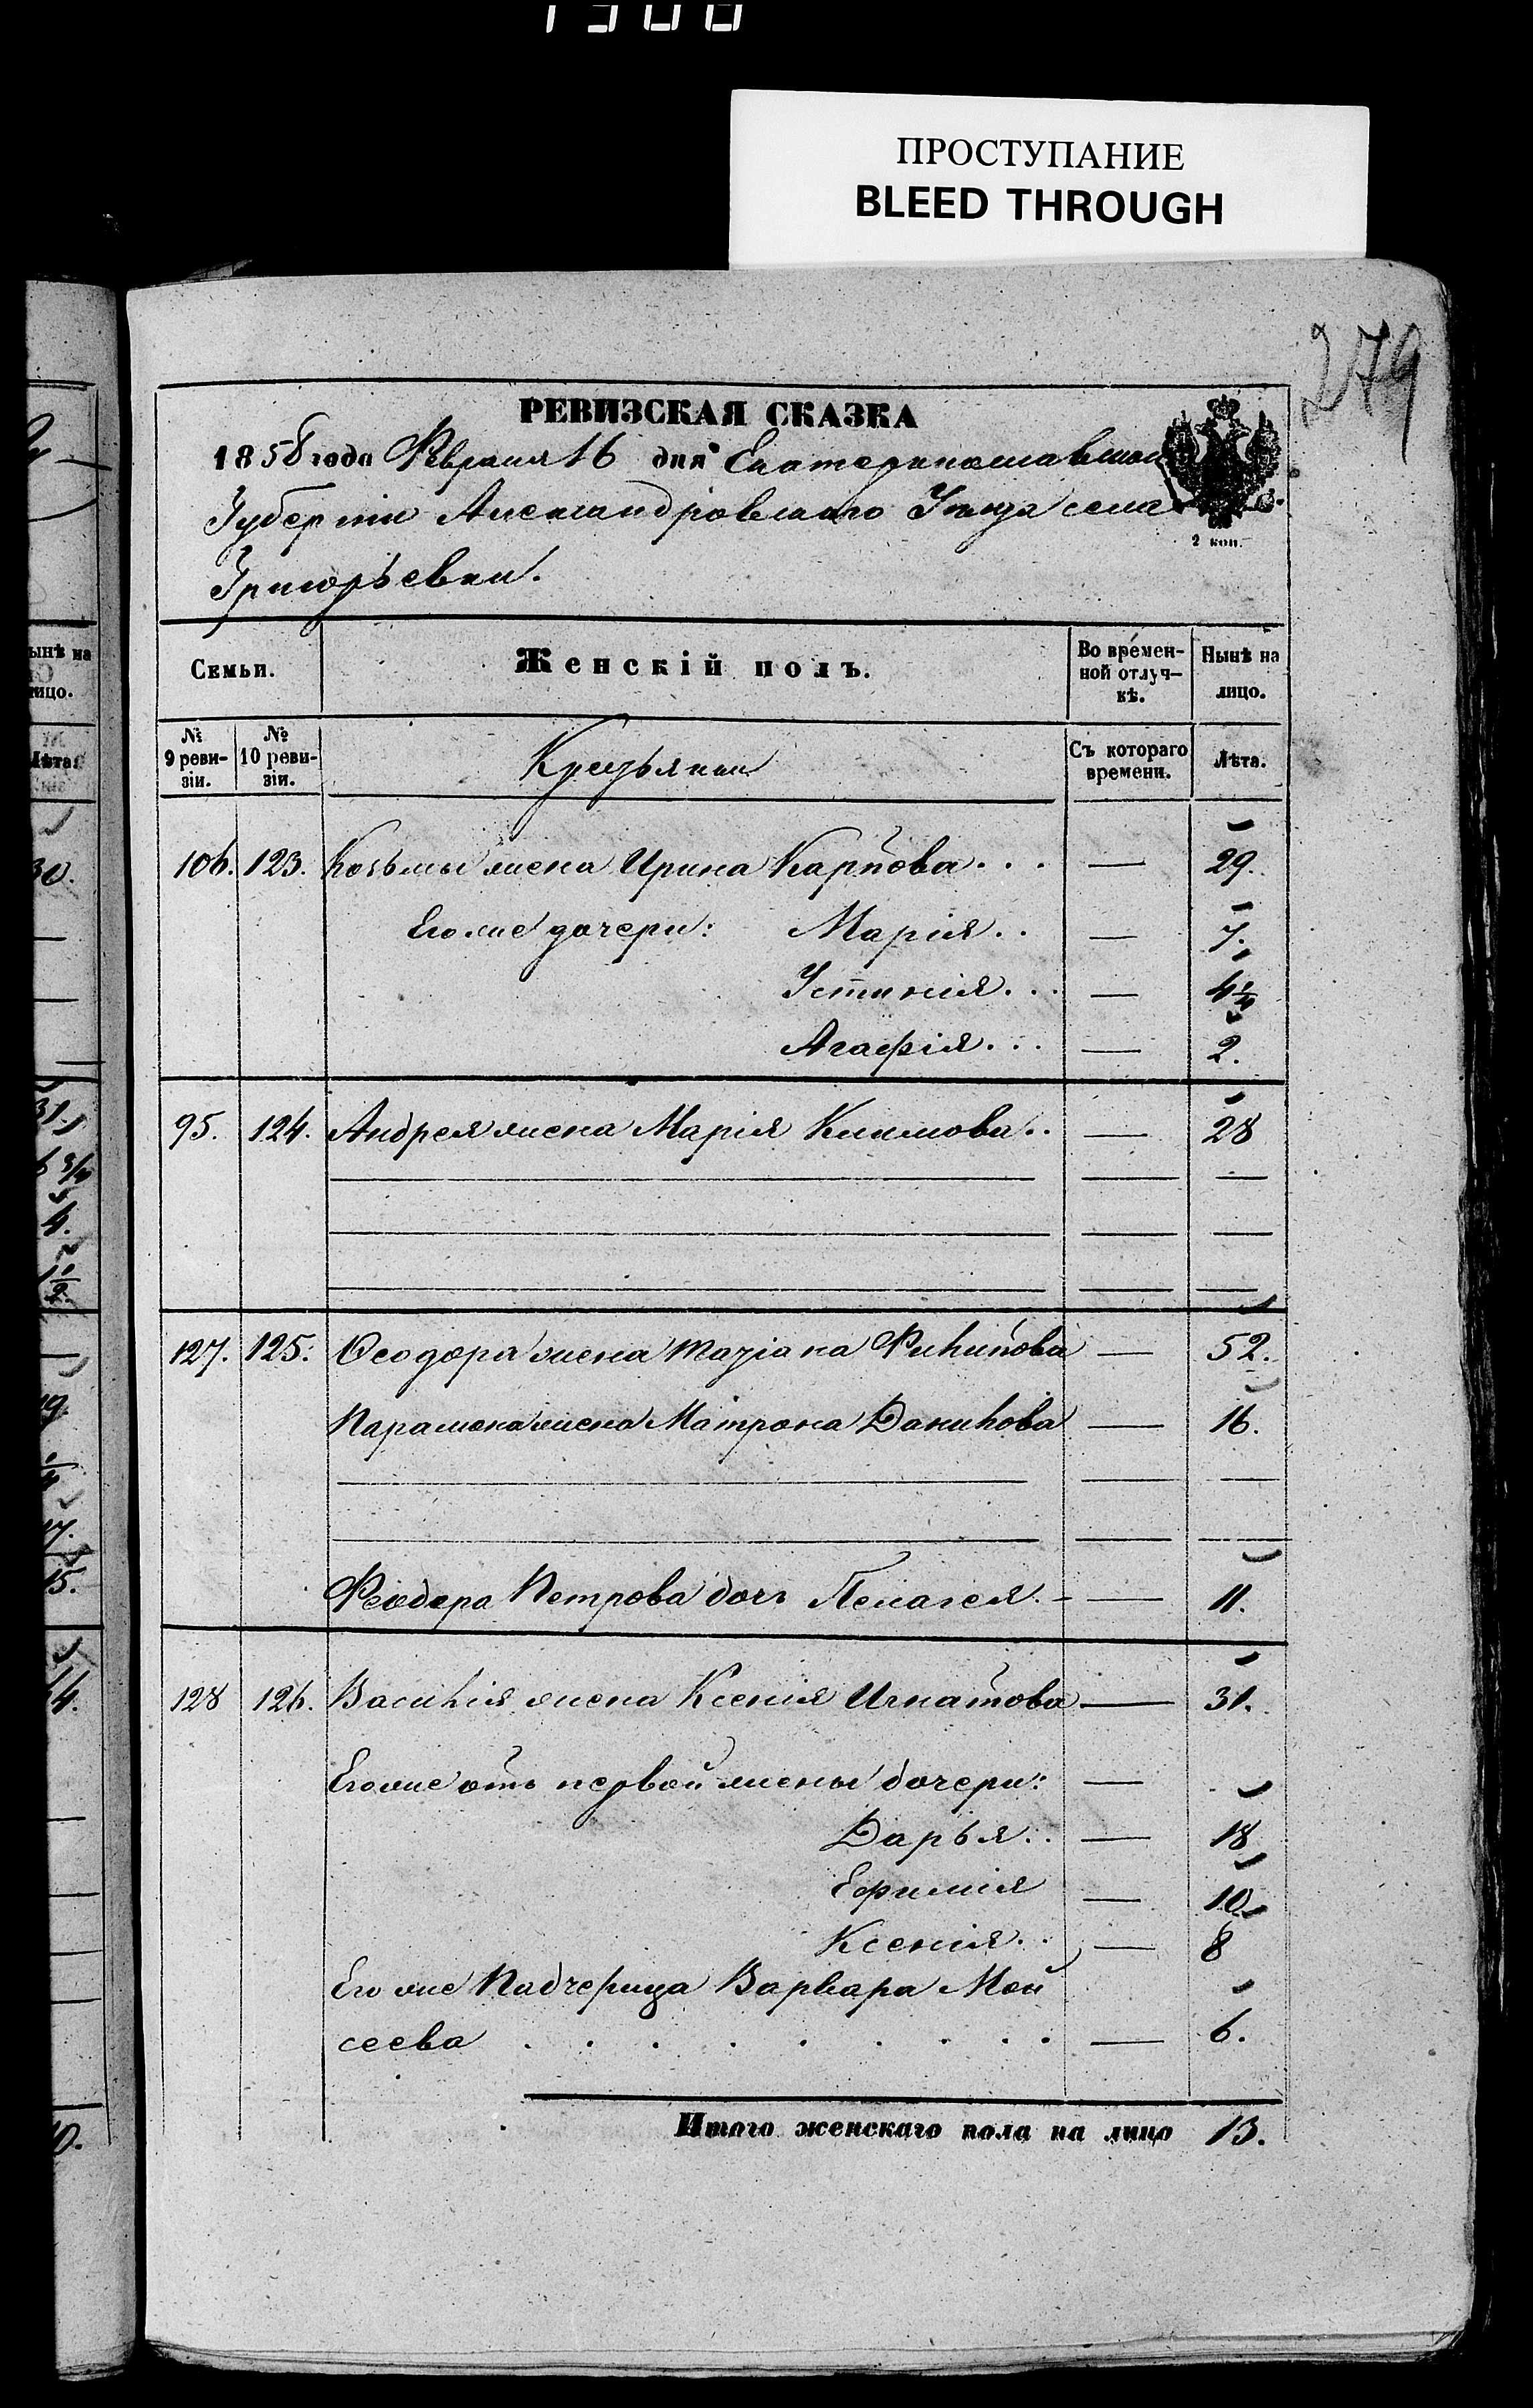 ПРОСТУПАНИЕ
BLEED THROUGH
279
РЕВИЗСКАЯ СКАЗКА
1858 года Февраля 16 дня Екатеринославской
Губерніи Александровскаго Уѣзда села
Григорьевки.
2 коп.
Семьи. Женскій полъ. Во времен-ной отлуч-кѣ. Нынѣ на лицо.
№ 9 реви-зіи. № 10 реви-зіи. Крестьянки Съ котораго времени. Лѣта.
106. 123. Козьмы жена Ирина Карпова... — 29.
Его же дочери: Марія.. — 7.
Устинія... — 4 1/4
Агафія... — 2.
95. 124. Андрея жена Марія Климова.. — 28
127. 125. Ѳеодора жена Татіана Филипова — 52.
Парамона жена Матрона Данилова — 16.
Феодора Петрова дочь Пелагея. — 11.
128 126. Василія жена Ксенія Игнатова — 31.
Его же отъ первой жены дочери: —
Дарья.. — 18
Ефимія — 10
Ксенія.. — 8
Его же Падчерица Варвара Мой
сеева . . . . . . . . — 6.
Итого женскаго пола на лицо 13.
ынѣ на
лицо.
Лѣта.
30.
31.
6 3/4
4.
1/2
19.
17.
15.
14.
10.